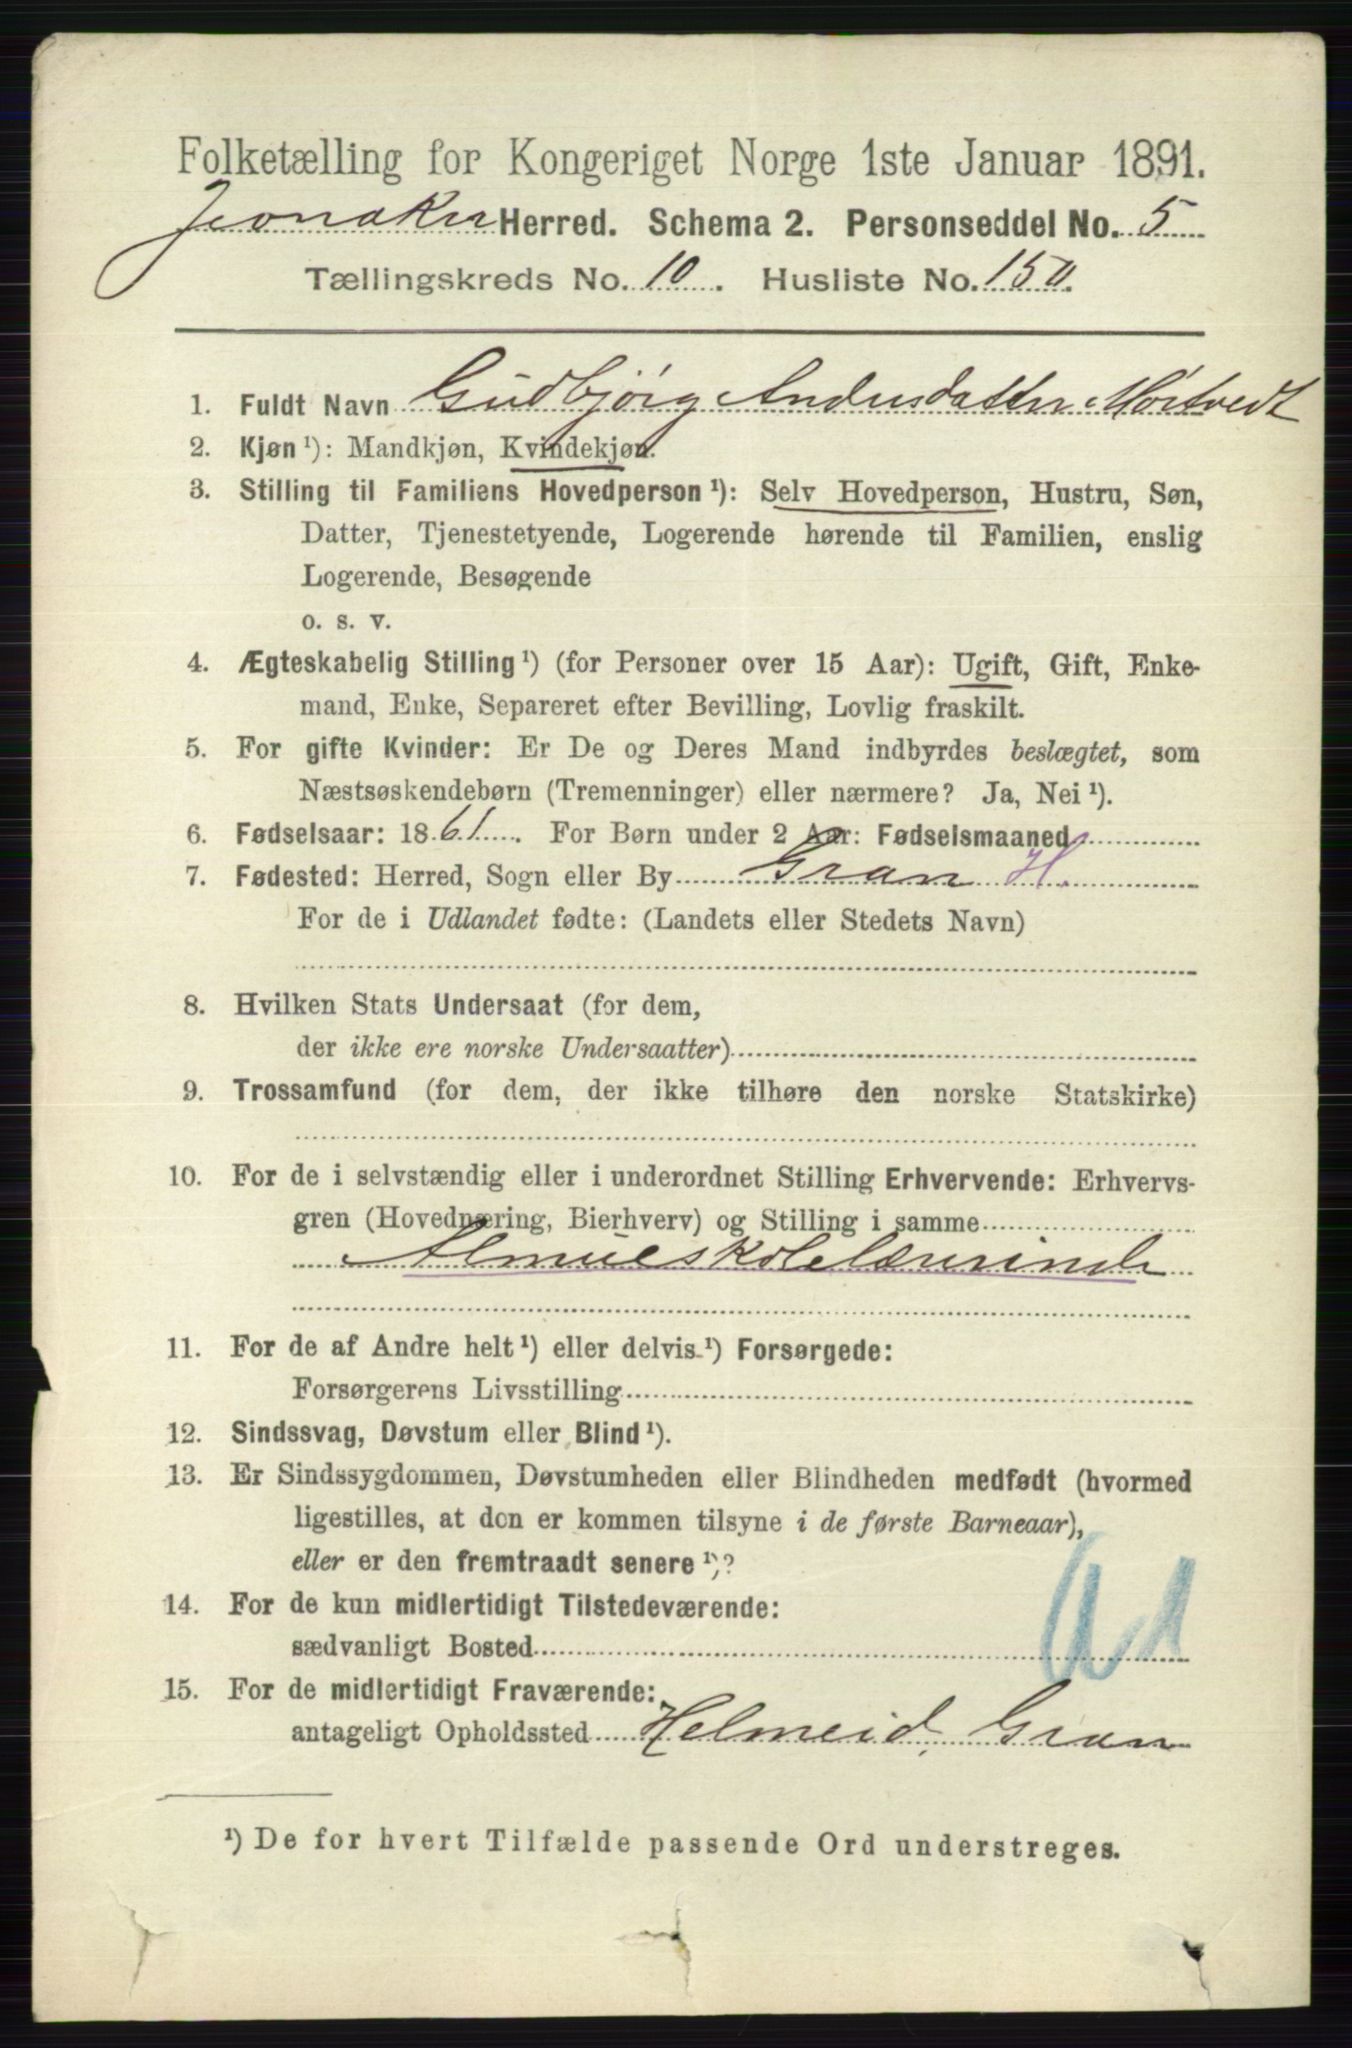 Folketælling for Kongeriget Norge 1ste Januar 1891.
Jevnaker Herred. Schema 2. Personseddel No. 5
Tællingskreds No. 10. Husliste No. 150.
1. Fuldt Navn Gudbjørg Andersdatter Mortvedt
2. Kjøn¹): Mandkjøn, Kvindekjøn.
3. Stilling til Familiens Hovedperson¹): Selv Hovedperson, Hustru, Søn,
Datter, Tjenestetyende, Logerende hørende til Familien, enslig
Logerende, Besøgende
o. s. v.
4. Ægteskabelig Stilling¹) (for Personer over 15 Aar): Ugift, Gift, Enke-
mand, Enke, Separeret efter Bevilling, Lovlig fraskilt.
5. For gifte Kvinder: Er De og Deres Mand indbyrdes beslægtet, som
Næstsøskendebørn (Tremenninger) eller nærmere? Ja, Nei¹).
6. Fødselsaar: 1861. For Børn under 2 Aar: Fødselsmaaned
7. Fødested: Herred, Sogn eller By Gran H.
For de i Udlandet fødte: (Landets eller Stedets Navn)
8. Hvilken Stats Undersaat (for dem,
der ikke ere norske Undersaatter)
9. Trossamfund (for dem, der ikke tilhøre den norske Statskirke)
10. For de i selvstændig eller i underordnet Stilling Erhvervende: Erhvervs-
gren (Hovednæring, Bierhverv) og Stilling i samme
Almueskolelærerinde
11. For de af Andre helt¹) eller delvis¹) Forsørgede:
Forsørgerens Livsstilling
12. Sindssvag, Døvstum eller Blind¹).
13. Er Sindssygdommen, Døvstumheden eller Blindheden medfødt (hvormed
ligestilles, at den er kommen tilsyne i de første Barneaar),
eller er den fremtraadt senere¹)?
14. For de kun midlertidigt Tilstedeværende:
sædvanligt Bosted
15. For de midlertidigt Fraværende:
antageligt Opholdssted Helmeid, Gran
¹) De for hvert Tilfælde passende Ord understreges.